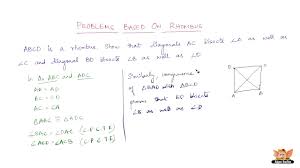 PROBLEMS BASED ON RHOMBUS
ABCD is a rhombus. Show that diagonals AC bisects ∠A as well as
∠C and diagonal BD bisects ∠B as well as ∠D.
In Δs ABC and ADC
AB = AD
BC = CD
AC = CA
ΔABC ≅ ΔADC
∠BAC = ∠DAC (C.P.C.T.E)
∠ACD = ∠ACB (C.P.C.T.E)
Similarly, congruence
of ΔBAD with ΔBCD
proves that BD bisects
∠B as well as ∠D